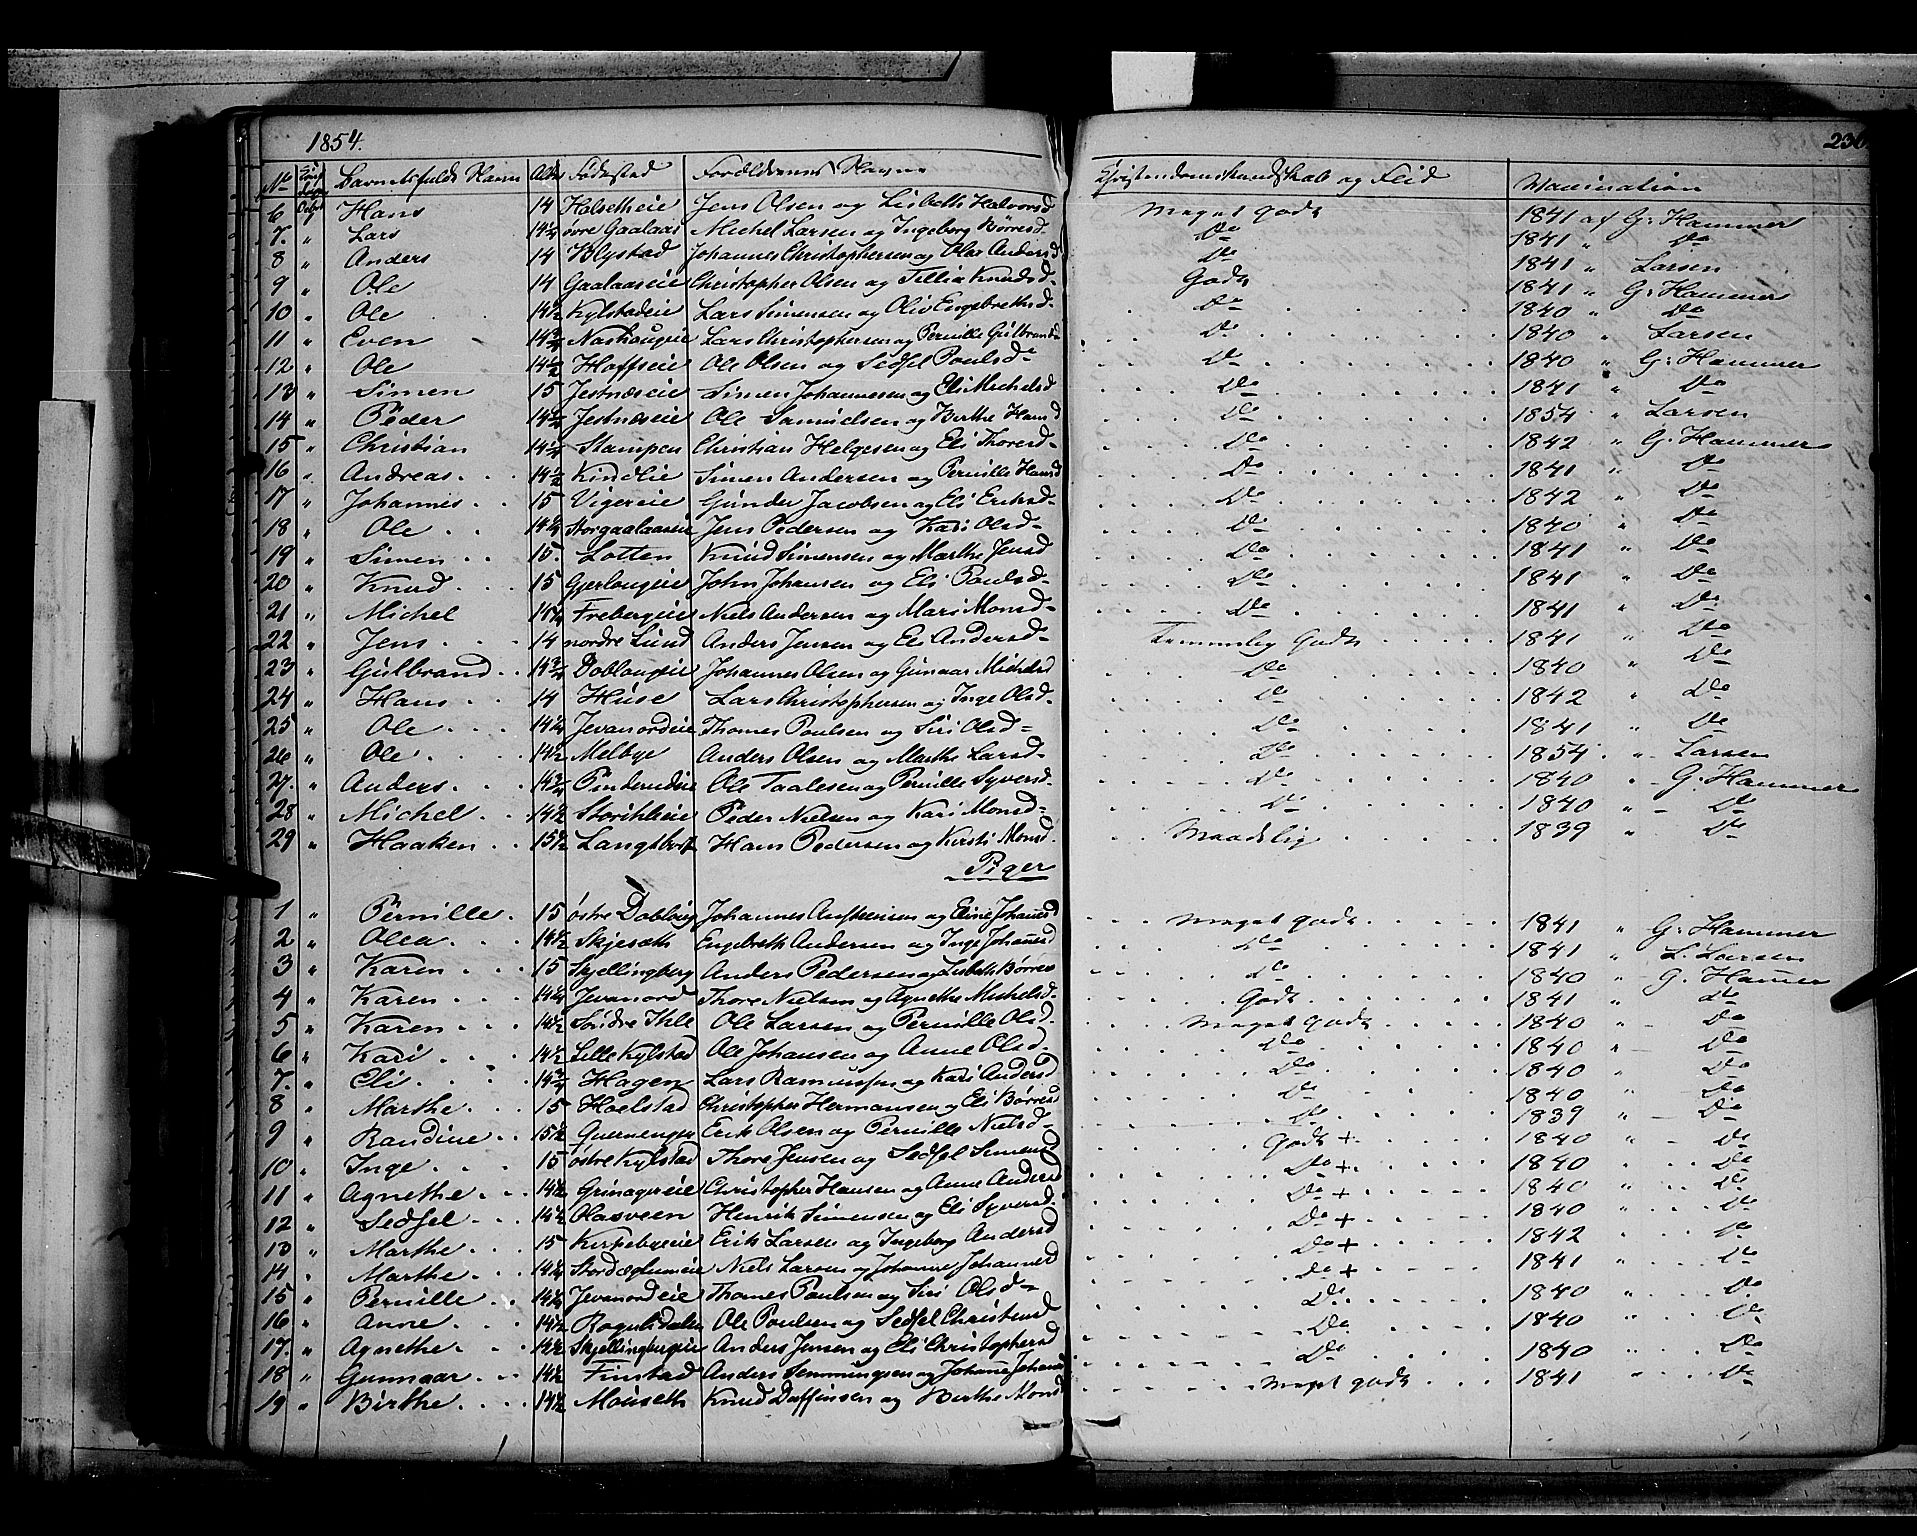 1854. 236.
No Barnets fulde Navn Alder Fødested Forældrenes Navne Christendomskundskab og Flid Vaccination
6 Hans 14 Halsetheie Jens Olsen og Lisbeth Halvorsd Meget godt 1841 af G: Hammer
7. " Lars 14½ øvre Gaalaas Michel Larsen og Ingeborg Børresd. Do 1841 " Do
8 " Anders 14 Blystad Johannes Christophersen og Olea Andersd Do 1841 " Larsen
9 " Ole 14 Gaalaaseie Christopher Olsen og Tillia Knudsd- Godt 1841 " G: Hammer
10 " Ole 14½ Kylstadeie Lars Simensen og Olia Engebrethsd- Do 1840 " Do
11 " Even 14¾ Nashougeie Lars Christophersen og Pernille Gulbrandsd Do 1840 " Larsen
12 " Ole 14½ Hoffseie Ole Olsen og Sedsel Poulsd- Do 1840 " G: Hammer
13 " Simen 15 Jestnæseie Simen Johannesen og Eli Michelsd Do 1841 " Do
14 " Peder 14½ Jestnæseie Ole Samuelsen og Birthe Hansd Do 1854 " Larsen
15 " Christian 14½ Stampen Christian Helgesen og Eli Thoresd- Do 1842 " G: Hammer
16 " Andreas 14½ Kindlie Simen Andersen og Pernille Hansd Do 1841 " Do
17 " Johannes 15 Vigereie Gunder Jacobsen og Eli Eriksd- Do 1842 " Do
18 " Ole 14¼ Storgaalaaseie Jens Pedersen og Kari Olsd- Do 1840 " Do
19 " Simen 15 Lotten Knud Simensen og Marthe Jensd Do 1841 " Do
20 " Knud 15 Gjerlougeie John Johansen og Eli Poulsd- Do 1841 " Do
21 " Michel 14¼ Frebergeie Niels Andersen og Mari Monsd- Do 1841 " Do
22 " Jens 14 nordre Lund Anders Jensen og Eli Andersd- Temmelig Godt 1841 " Do
23 " Gulbrand 14¾ Doblougeie Johannes Olsen og Gunaar Michelsd Do 1840 " Do
24 " Hans 14 Huse Lars Christophersen og Inge Olsd Do 1842 " Do
25 " Ole 14¼ Jevanordeie Thomes Poulsen og Siri Olsd- Do 1841 " Do
26 " Ole 14½ Melbye Anders Olsen og Marthe Larsd- Do 1854 " Larsen
27. " Anders 14¾ Pinderudeie Ole Taalesen og Pernille Syversd. Do 1840 " G. Hammer
28 " Michel 14½ Storihleie Peder Nielsen og Kari Monsd- Do 1840 " Do
29 " Haaken 15½ Langtbort Hans Pedersen og Kirsti Monsd. Maadelig 1839 " Do
Piger
1 " Pernille 15 østre Dobloug Johannes Anstensen og Eline Johansd Meget godt 1841 " G: Hammer
2 " Olea 14½ Skjeseth Engebreth Andersen og Inge Johannesd Do 1841 " L. Larsen
3 " Karen 15 Skjellingberg Anders Pedersen og Lisbeth Børresd Do 1840 " G. Hammer
4 " Karen 14¼ Jevanord Thore Nielsen og Agnethe Michelsd- Godt 1841 " Do
5 " Karen 14½ Søndre Ihle Ole Larsen og Pernille Olsd. Meget godt 1840 " Do
6 " Kari 14½ Lille Kylstad Ole Johansen og Anne Olsd- Do 1840 " Do
7. " Eli 14¾ Hagen Lars Rasmussen og Kari Andersd Do 1840 " Do
8 " Marthe 15 Hoelstad Christopher Hermansen og Eli Børresd Do 1840 " Do
9 " Randine 15½ Quernenget Erik Olsen og Pernille Nielsd- Do 1839 " Do
10 " Inge 15 østre Kylstad Thore Jensen og Sedsel Simensd Godt + 1840 " Do
11 " Agnethe 14½ Grinagereie Christopher Hansen og Anne Andersd Do + 1840 " Do
12 " Sedsel 14½ Olasveen Henrik Simensen og Eli Syversd- Do + 1840 " Do
13 " Marthe 15 Kirkebyeie Erik Larsen og Ingeborg Andersd Do + 1840 " Do
14 " Marthe 14¼ Stordæhlumeie Niels Larsen og Johanne Johannesd Do + 1842 " Do
15 " Pernille 14¼ Jevanordeie Thomes Poulsen og Siri Olsd- Do + 1841 " Do
16 " Anne 14½ Rogulsdalen Ole Poulsen og Sedsel Christensd Do. 1840 " Do
17. " Agnethe 14½ Skjellingbergeie Anders Jensen og Eli Christophersd Do 1840 " Do
18 " Gunnaar 14½ Finstad Anders Semmingsen og Johanne Johannesd Do 1840 " Do
19 " Birthe 14½ Mouseth Knud Daffinsen og Birthe Monsd Meget godt 1841 " Do